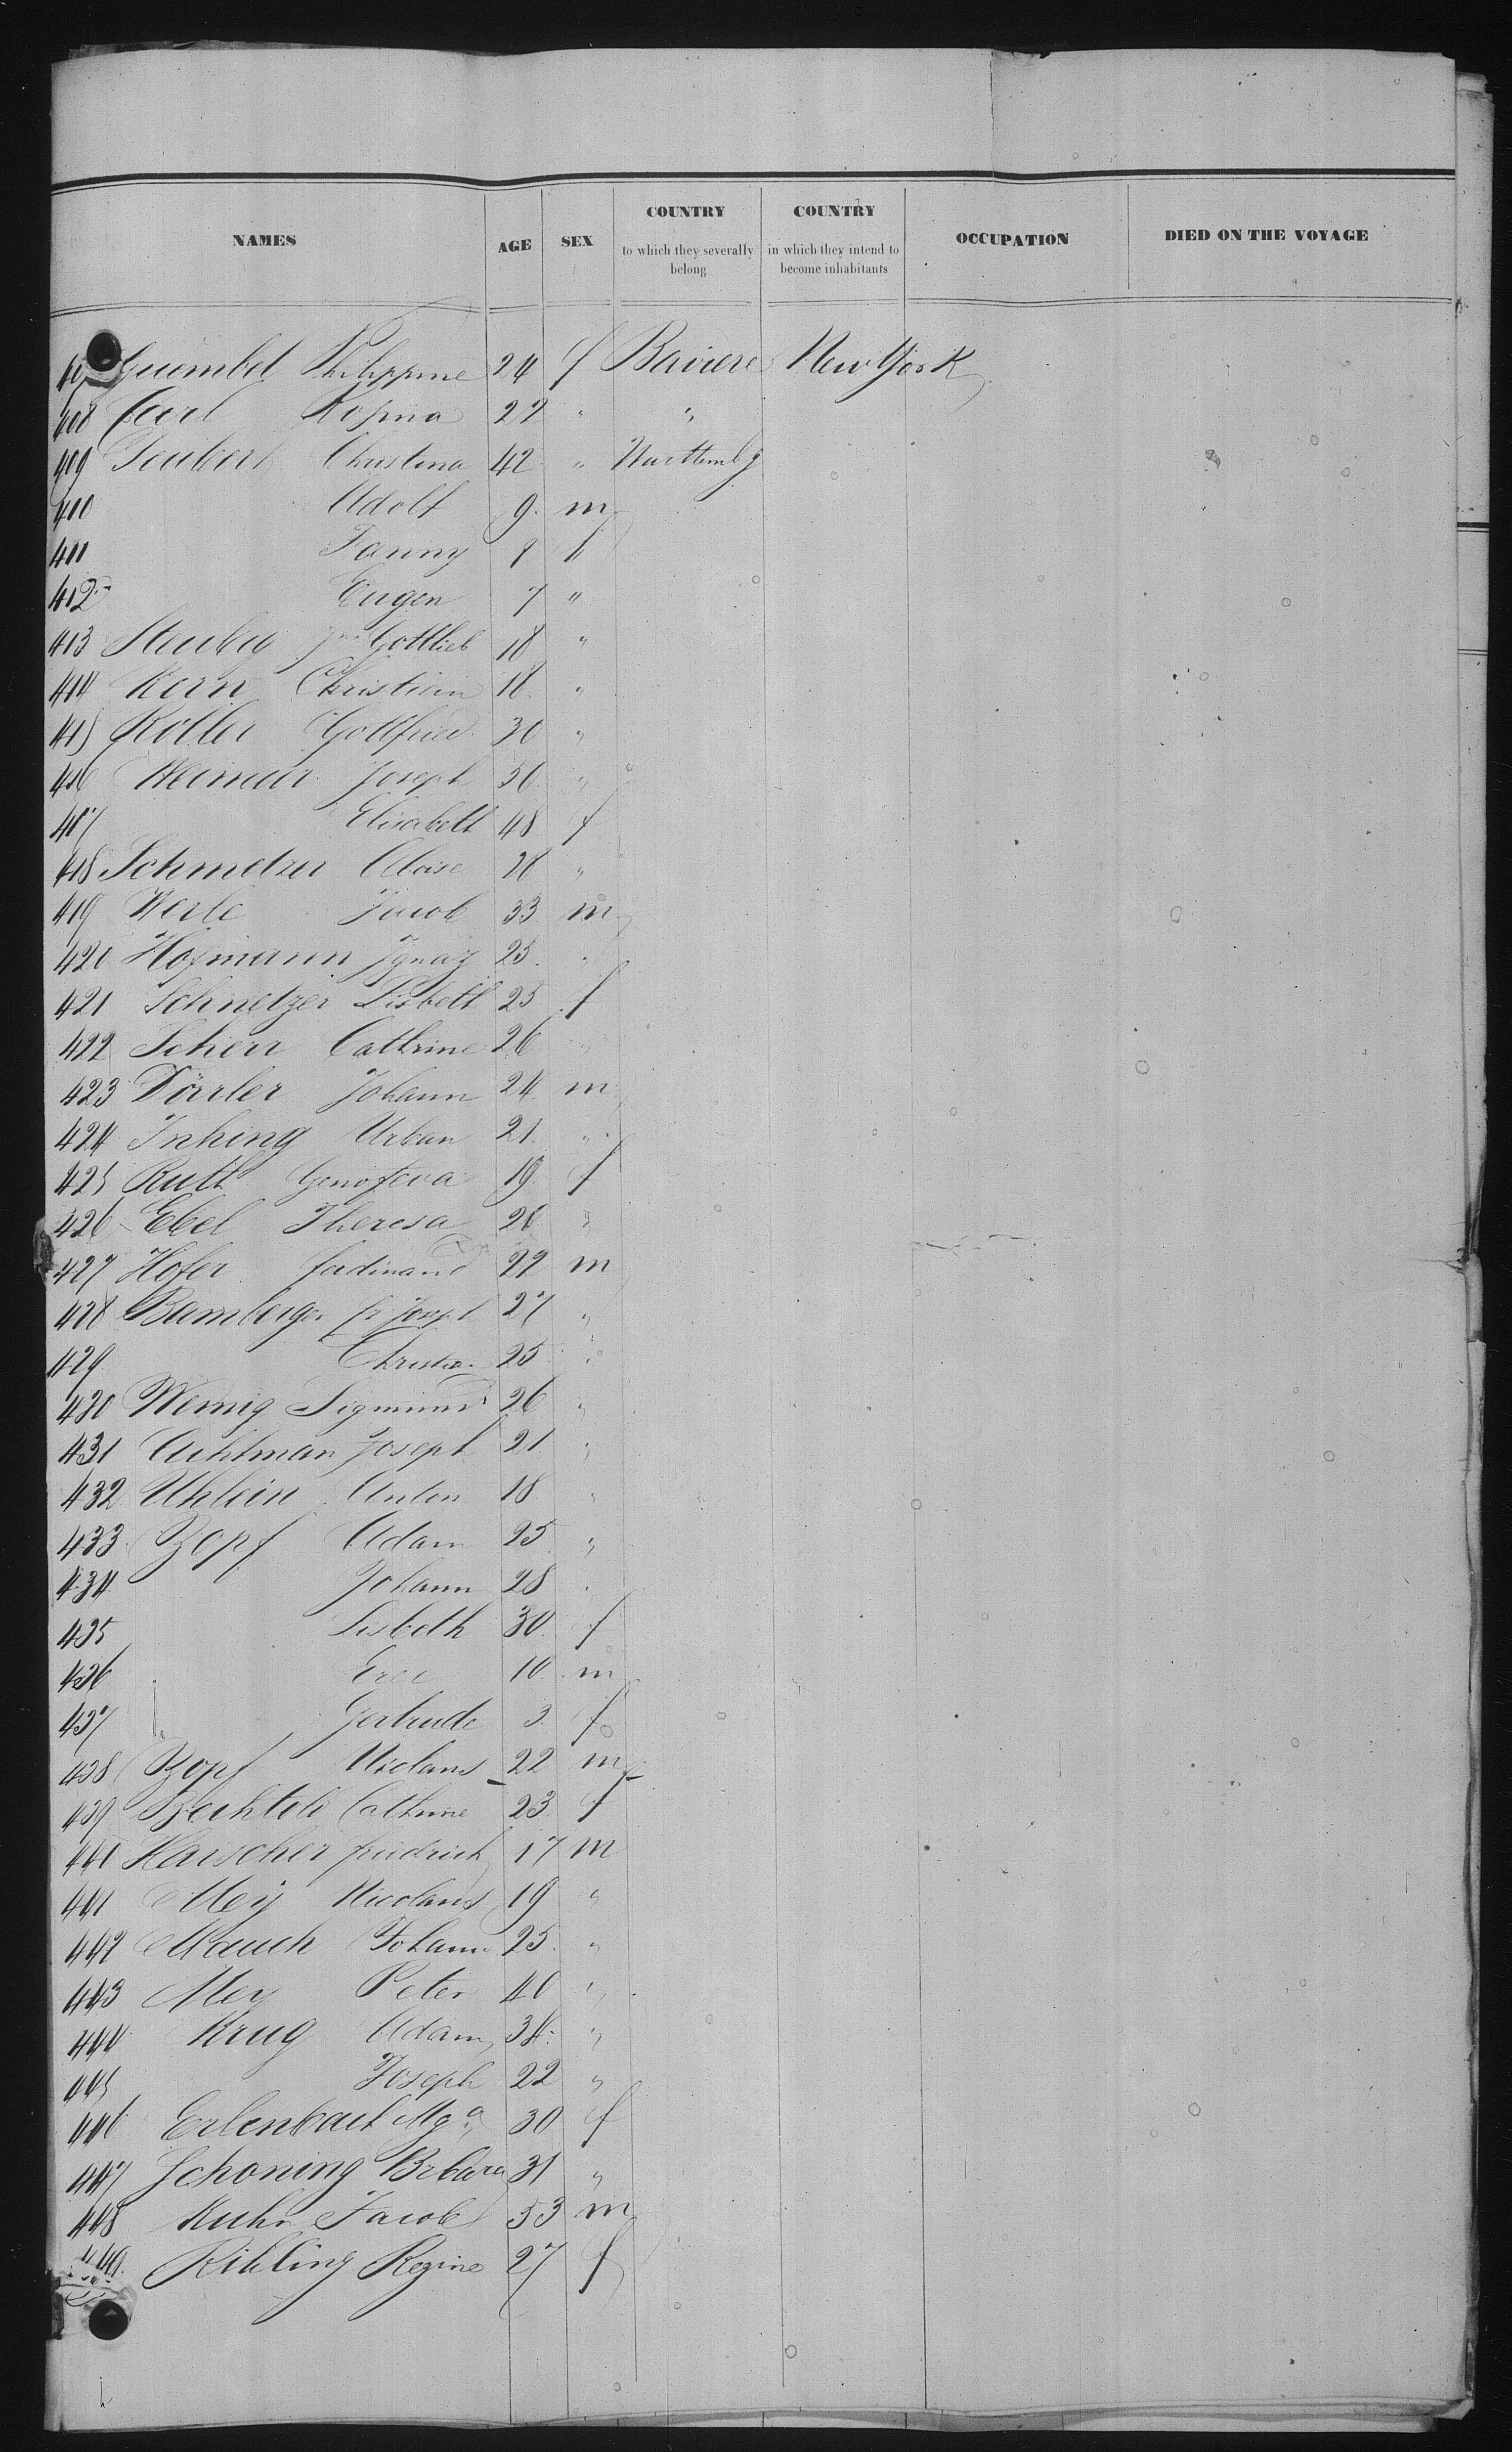 NAMES AGE SEX COUNTRY to which they severally belong COUNTRY in which they intend to become inhabitants OCCUPATION DIED ON THE VOYAGE
Guembel Philippine 24 f Baviere New York
408 Carl Rosina 27 "  "
409 Teubert Christina 42 " Wurttembg
410 Adolf 9 m
411 Fanny 9 f
412 Eugen 7 "
413 Gottlieb 18 "
414 Kern Christian 18 "
415 Koller Gottfried 30 "
416 Weimar Joseph 50 "
417 Elisabeth 48 f
418 Schmelzer 28 "
419 Werle Jacob 33 m
420 Hofmann Ignaz 25 "
421 Schnetzer Lisbeth 25 f
422 Scherr Cathrine 26 "
423 Dörrler Johann 24 m
424 Inhing Urban 21 "
425 Ruth Genofeva 19 f
426 Ebel Theresa 28 "
427 Hofer Ferdinand 22 m
428 Bamberger fr Joseph 27 "
429 Christian 25 "
430 Wernig Sigmund 26 "
431 Joseph 21 "
432 Uhlein Anton 18 "
433 Zopf Adam 25 "
434 Johann 28 "
435 Lisbeth 30 f
436 10 m
437 Gertrude 3 f
438 Zopf Niclaus 22 m
439 Bechteli Cathrine 23 f
440 Haischer Friedrich 17 m
441 Mey Nicolaus 19 "
442 Mauch Johann 25 "
443 Mey Peter 40 "
444 Krug Adam 34 "
445 Joseph 22 "
446 Erlenbach Mga 30 f
447 Schoning Brbara 31 "
448 Kuhn Jacob 53 m
449 Kibling Regine 27 f